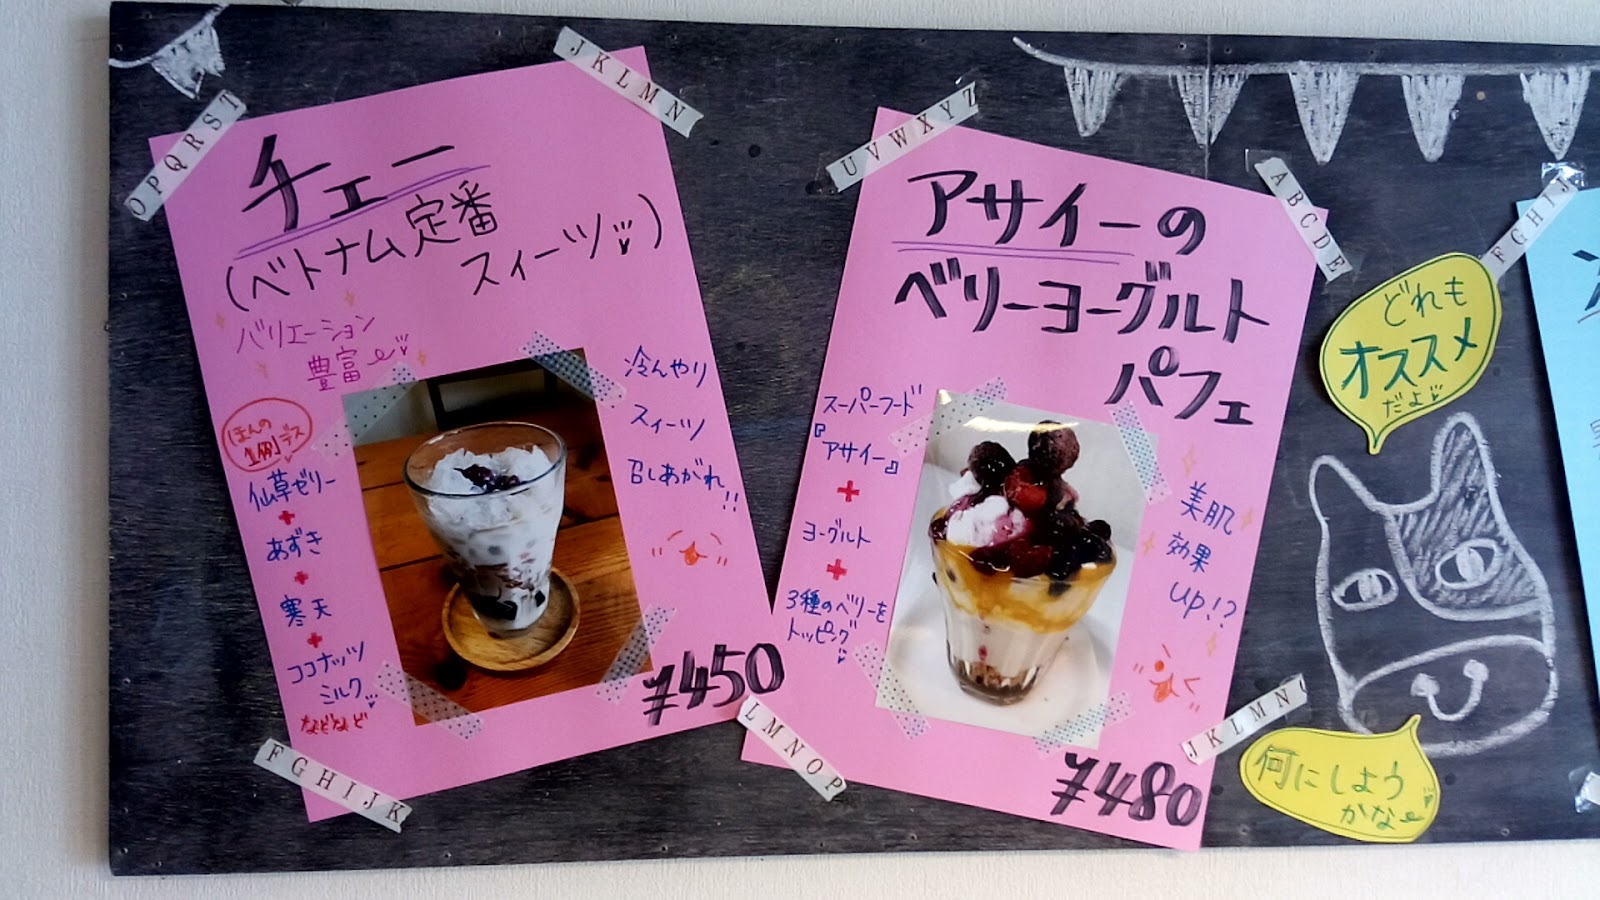 OPQRST
JKLMN
チェー
(ベトナム定番
スィーツ)
バリエーション
豊富
ほんの
1例デス
仙草ゼリー
+
あずき
+
寒天
+
ココナッツ
ミルク
などなど
冷んやり
スィーツ
召しあがれ!!
¥450
FGHIJK
UVWXYZ
ABCDE
アサイーの
ベリーヨーグルト
パフェ
スーパーフード
『アサイー』
+
ヨーグルト
+
3種のベリーを
トッピング
美肌
効果
up!?
¥480
LMNOP
JKLMN
FGHIJ
どれも
オススメ
だよ
何にしよう
かな